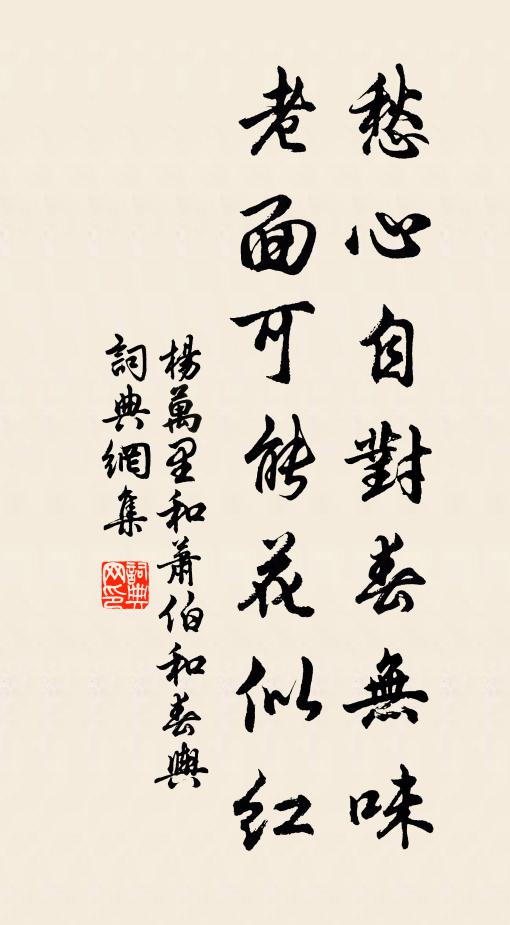 愁心自對春無味
老面可能花似紅
楊萬里和蕭伯和春興
詞典網集
詞典网印